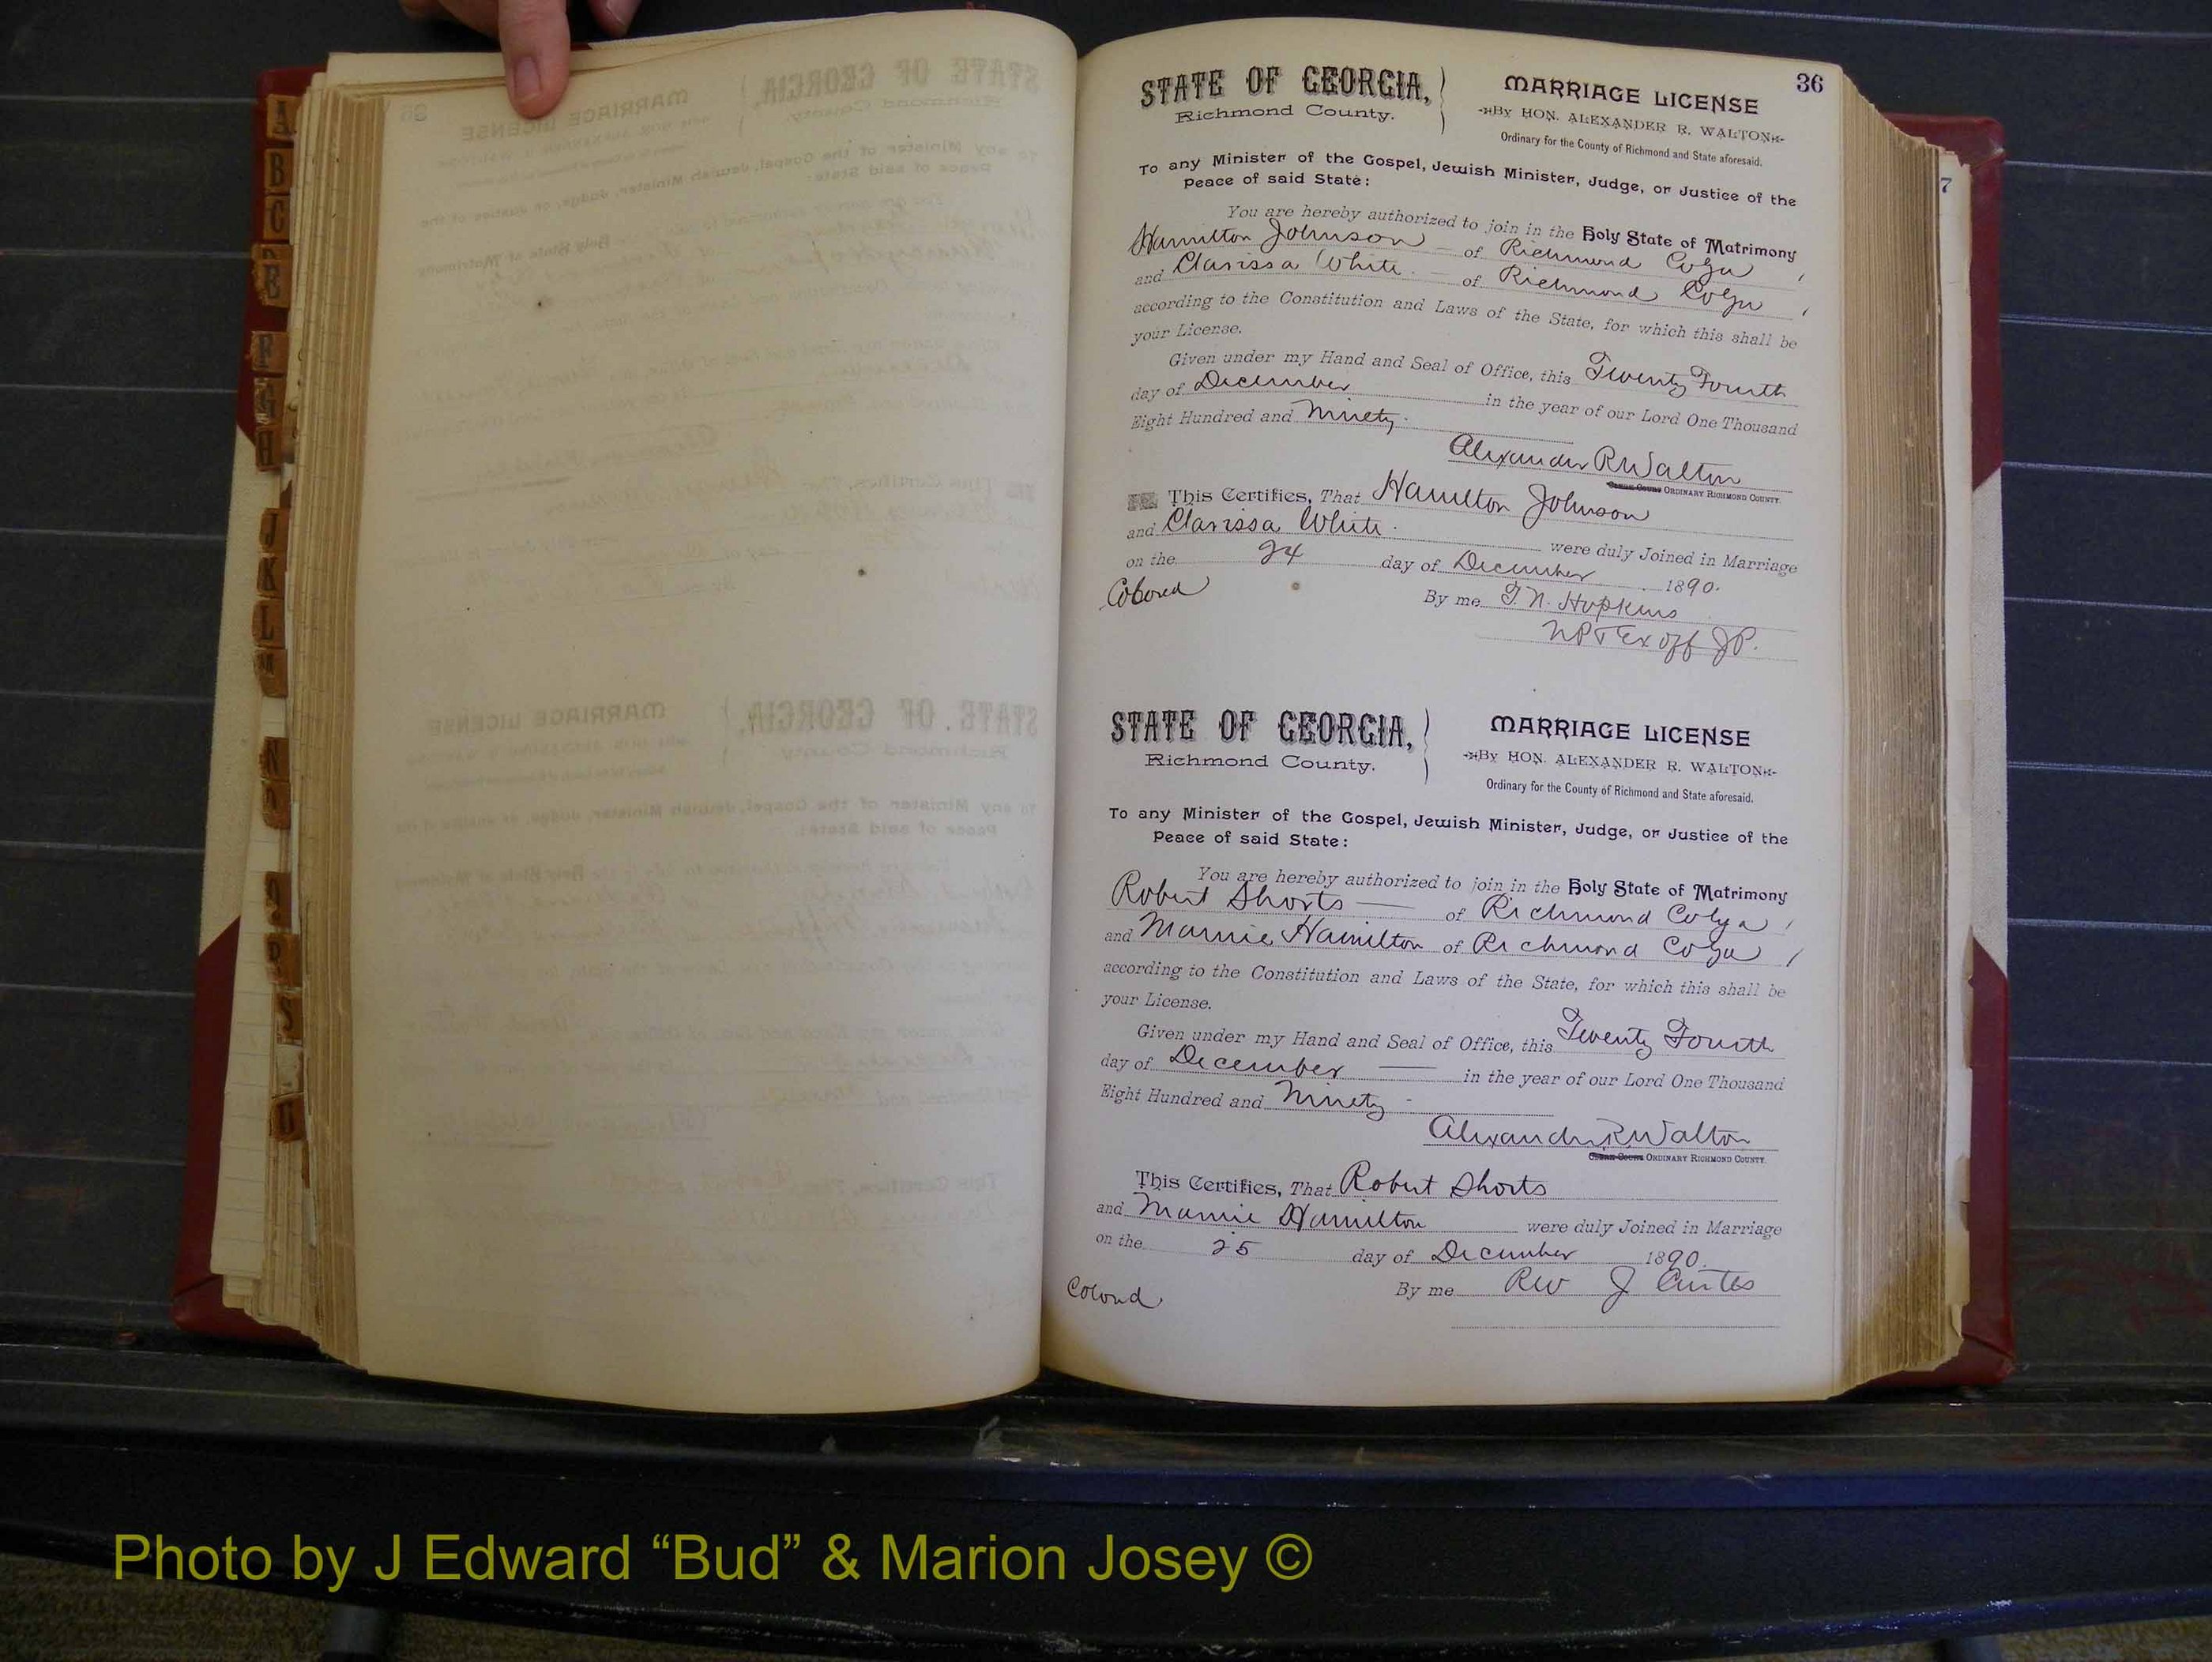 36
STATE OF GEORGIA,
Richmond County.
MARRIAGE LICENSE
By HON. ALEXANDER R. WALTON
Ordinary for the County of Richmond and State aforesaid.
To any Minister of the Gospel, Jewish Minister, Judge, or Justice of the
Peace of said State:
You are hereby authorized to join in the Holy State of Matrimony
Hamilton Johnson — of Richmond Co Ga,
and Clarissa White — of Richmond Co Ga,
according to the Constitution and Laws of the State, for which this shall be
your License.
Given under my Hand and Seal of Office, this Twenty Fourth
day of December in the year of our Lord One Thousand
Eight Hundred and Ninety.
Alexander R Walton
ORDINARY RICHMOND COUNTY.
This Certifies, That Hamilton Johnson
and Clarissa White were duly Joined in Marriage
on the 24 day of December 1890.
Colored
By me Hopkins
NP & Ex off JP.
STATE OF GEORGIA,
Richmond County.
MARRIAGE LICENSE
By HON. ALEXANDER R. WALTON
Ordinary for the County of Richmond and State aforesaid.
To any Minister of the Gospel, Jewish Minister, Judge, or Justice of the
Peace of said State:
You are hereby authorized to join in the Holy State of Matrimony
Robert Shorts — of Richmond Co Ga,
and Mamie Hamilton of Richmond Co Ga,
according to the Constitution and Laws of the State, for which this shall be
your License.
Given under my Hand and Seal of Office, this Twenty Fourth
day of December — in the year of our Lord One Thousand
Eight Hundred and Ninety -
Alexander R Walton
ORDINARY RICHMOND COUNTY.
This Certifies, That Robert Shorts
and Mamie Hamilton were duly Joined in Marriage
on the 25 day of December 1890.
By me Rev J
Colord
7
A
B
C
E
F
G
H
J
K
L
M
N
O
R
S
Photo by J Edward “Bud” & Marion Josey ©